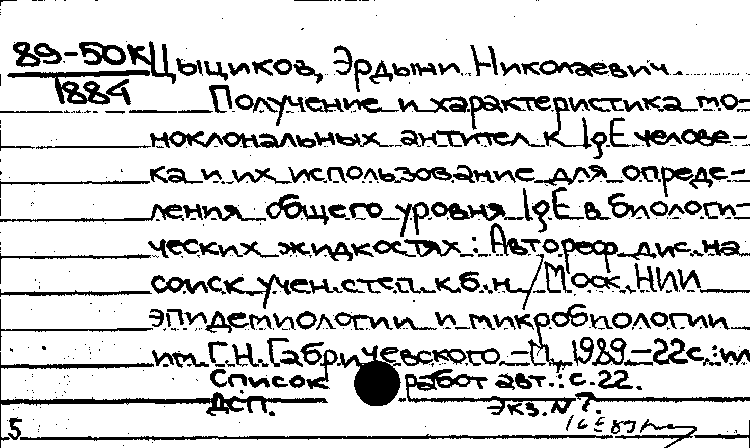 89-50К Цыщиков, Эрдыни Николаевич.
1884 Получение и характеристика мо-
ноклональных антител к IgE челове-
ка и их использование для опреде-
ления общего уровня IgE в биологи-
ческих жидкостях: Автореф. дис. на
соиск. учен. степ. к.б.н. / Моск. НИИ
эпидемиологии и микробиологии
им. Г.Н. Габричевского. - М., 1989. - 22с.: ил
Список работ авт.: с. 22.
ДСП. Экз. N 7.
5